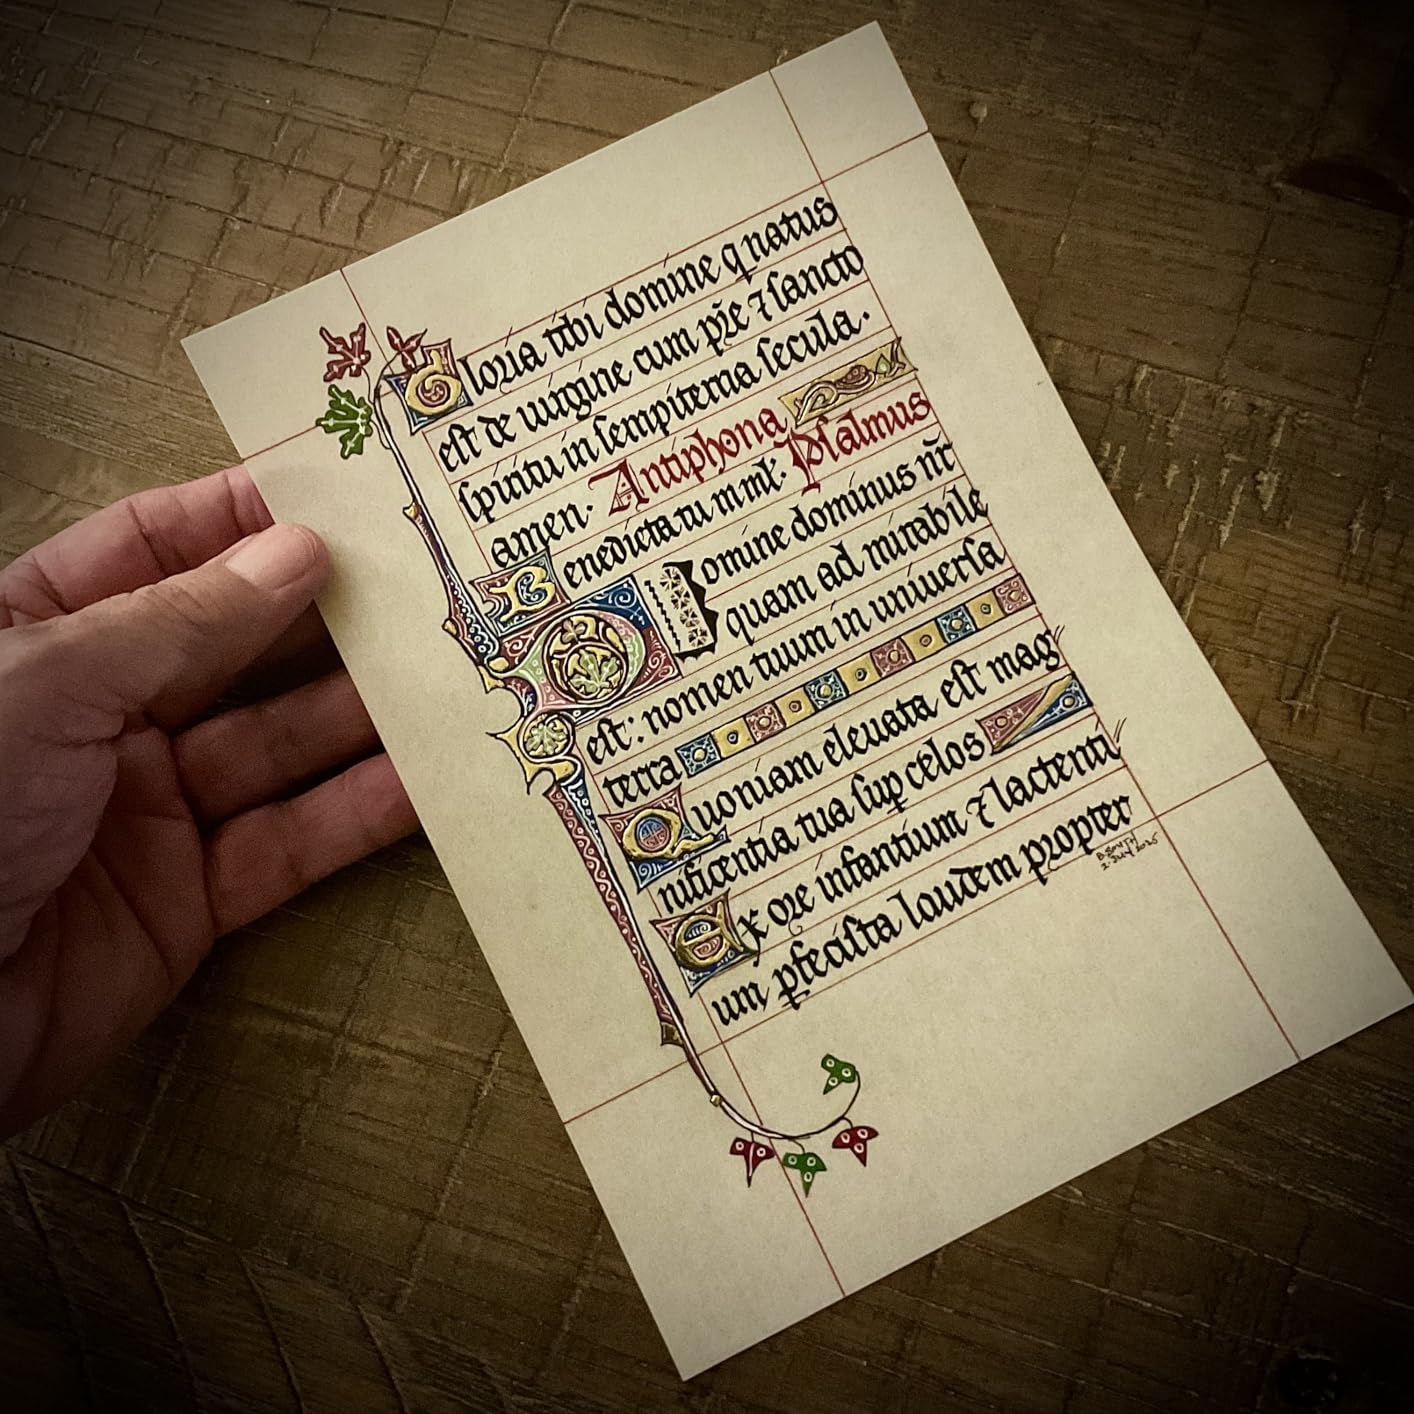 Gloria tibi domine q natus
est de uirgine cum pr̄e ⁊ sancto
spiritu in sempiterna secula.
amen. Antiphona
Benedicta tu m ml'. Psalmus
Domine dominus nr̄
quam ad mirabile
est: nomen tuum in uniuersa
terra
Quoniam eleuata est mag
nificentia tua sup celos
Ex ore infantium ⁊ lactenti
um ꝑfecista laudem propter
B. Smith
2. July 2025